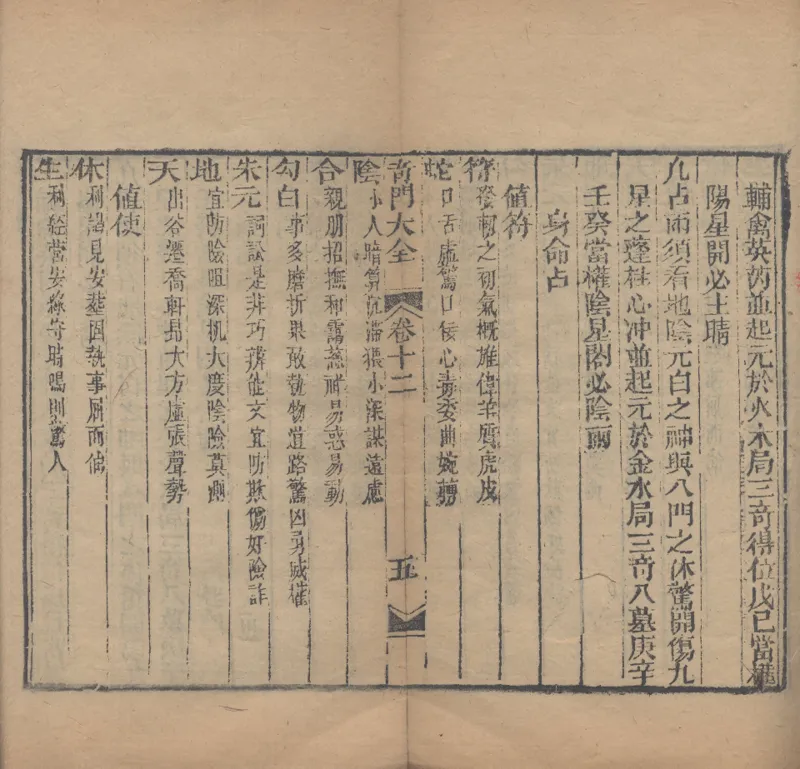 輔禽英芮並起元於火木局三奇得位戊已當權
陽星開必主晴
凡占雨須看地陰元白之神與八門之休驚開傷九
星之蓬柱心冲並起元於金水局三奇入墓庚辛
壬癸當權陰星闔必陰雨
身命占
值符
符 發軔之初氣概雄偉羊質虎皮
蛇 口舌虛驚口佞心毒委曲婉
陰 小人暗算沉滯猥小深謀遠慮
奇門大全 卷十二 五
合 親朋招撫和靄慈祥易惑易動
勾白 事多磨折果敢執物道路驚凶勇威權
朱元 詞訟是非巧猾能文宜防欺傷好險詐
地 宜防陰咀深机大度陰險莫測
天 出谷遷喬軒昂大方虛張聲勢
值使
休 利謁見安基固執事屑而偹
生 利經營安祿守時鳴則驚人